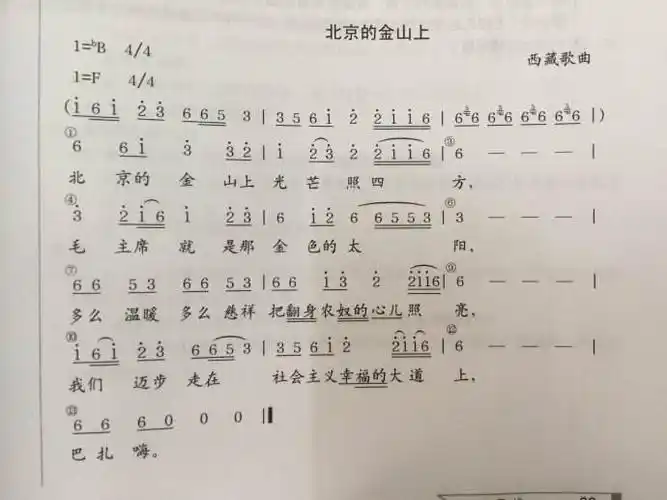 北京的金山上
1=ᵇB 4/4
西藏歌曲
1=F 4/4
(i 6 i 2 3 6 6 5 3 | 3 5 6 i 2 2 i i 6 | 6 6 6 6 6 6 6 6 |)
① ③
6 6 i 3 3 2 | i 2 3 2 2 i i 6 | 6 — — — |
北 京的 金 山上 光 芒 照四 方,
④ ⑥
3 2 i 6 i 2 3 | 6 i 2 6 6 5 5 3 | 3 — — — |
毛 主席 就 是那 金 色的 太 阳,
⑦ ⑨
6 6 5 3 6 6 5 3 | 6 6 i 3 2 2 i i 6 | 6 — — — |
多么 温暖 多么 慈祥 把翻身农奴的心儿照 亮,
⑩ ⑫
i 6 i 2 3 6 6 5 3 | 3 5 6 i 2 2 i i 6 | 6 — — — |
我们 迈步 走在 社会主义幸福的大道 上,
⑬
6 6 6 0 0 0 ‖
巴 扎 嗨。